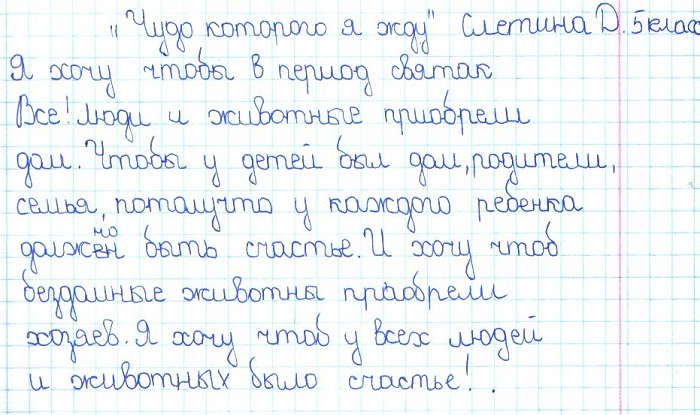 "Чудо которого я жду" Слетина Д. 5 класс
Я хочу чтобы в период святак
Все! люди и животные приобрели
дом. Чтобы у детей был дом, родители,
семья, потамучто у каждого ребенка
должено быть счастье. И хочу чтоб
бездомные животны приобрели
хозяев. Я хочу чтоб у всех людей
и животных было счастье! .